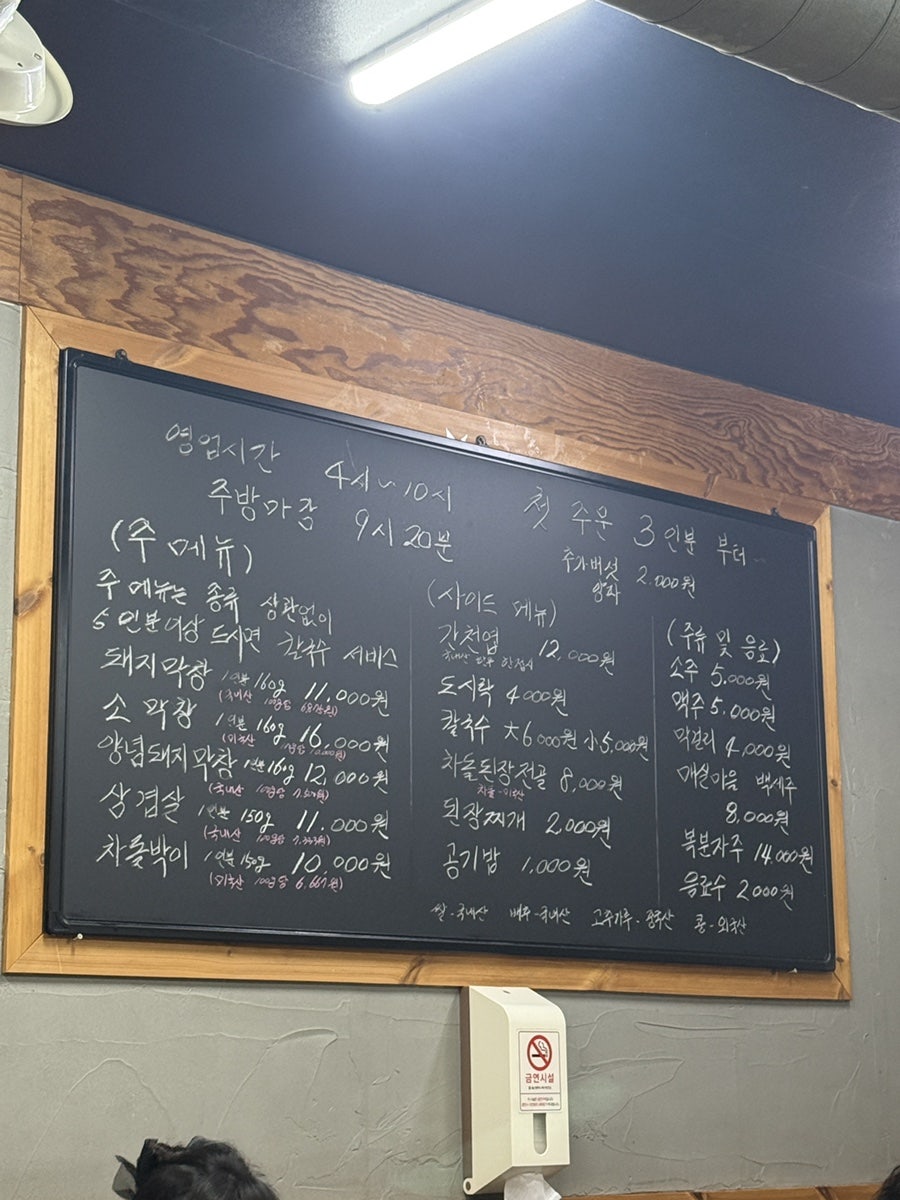 영업시간 4시~10시
주방마감 9시 20분
첫 주문 3인분 부터
추가버섯 2.000원
양파
(주 메뉴)
주 메뉴는 종류 상관없이
5인분이상 드시면 칼국수 서비스
돼지막창 1인분 160g 11.000원
(국내산 100g당 6.875원)
소 막창 1인분 160g 16.000원
(외국산 100g당 10.000원)
양념돼지막창 1인분 160g 12,000원
(국내산 100g당 7.500원)
삼겹살 1인분 150g 11.000원
(국내산 100g당 7.333원)
차돌박이 1인분 150g 10.000원
(외국산 100g당 6.667원)
(사이드 메뉴)
간천엽 12,000원
국내산 한접시
도시락 4000원
칼국수 大6000원 小5,000원
차돌된장전골 8,000원
차돌-외국산
된장찌개 2,000원
공기밥 1,000원
(주류 및 음료)
소주 5.000원
맥주 5.000원
막걸리 4,000원
매실마을 백세주
8.000원
복분자주 14.000원
음료수 2000원
쌀-국내산 배추-국내산 고추가루-중국산 콩-외국산
금연시설